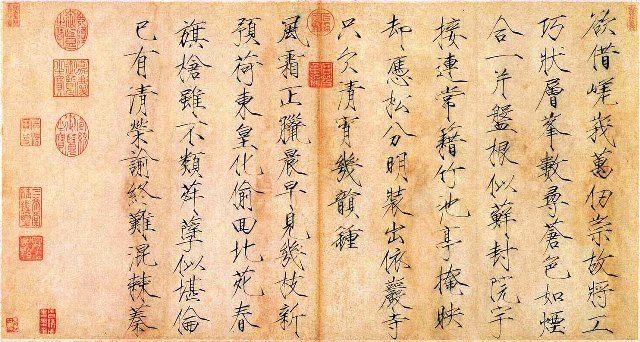 欲借嶢峩萬仞崇故將工
巧狀層峯數尋蒼色如煙
合一片盤根似蘚封院宇
接連常藉竹池亭掩映
却應松分明裝出依巖寺
只欠清宵幾韻鍾
風霜正臘晨早見幾枝新
預荷東皇化偷回北苑春
旗槍雖不類荈蘖似堪倫
已有清榮諭終難混棘蓁